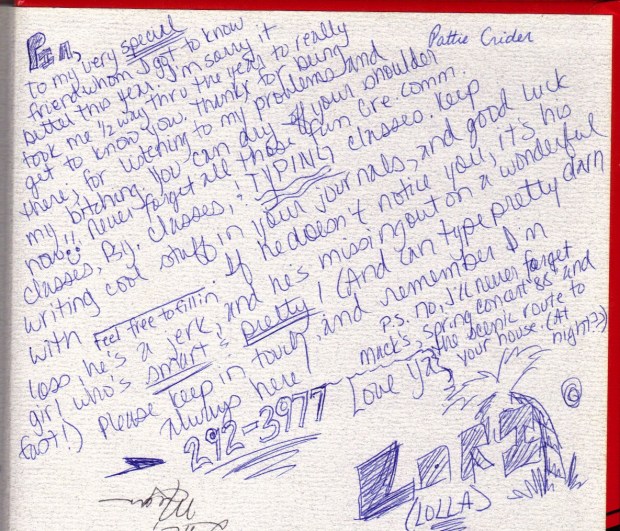 Pam,
Pattie Crider
to my very special
friend whom I got to know
better this year. I'm sorry it
took me 1/2 way thru the year to really
get to know you. Thanks for being
there, for listening to my problems and
my bitching. You can dry off your shoulder
now!! Never forget all those fun Cre. comm.
classes, By. classes, & TYPING classes. Keep
writing cool stuff in your journals, and good luck
with feel free to fill in. If he doesn't notice you, it's his
loss, he's a jerk, and he's missing out on a wonderful
girl who's smart & pretty! (And can type pretty darn
fast!) Please keep in touch, and remember I'm
always here!
292-3977
P.S. no, I'll never forget
mack's, spring concert '88 and
the scenic route to
your house. (At
night??)
Love Ya,
LORI
(LOLLA)